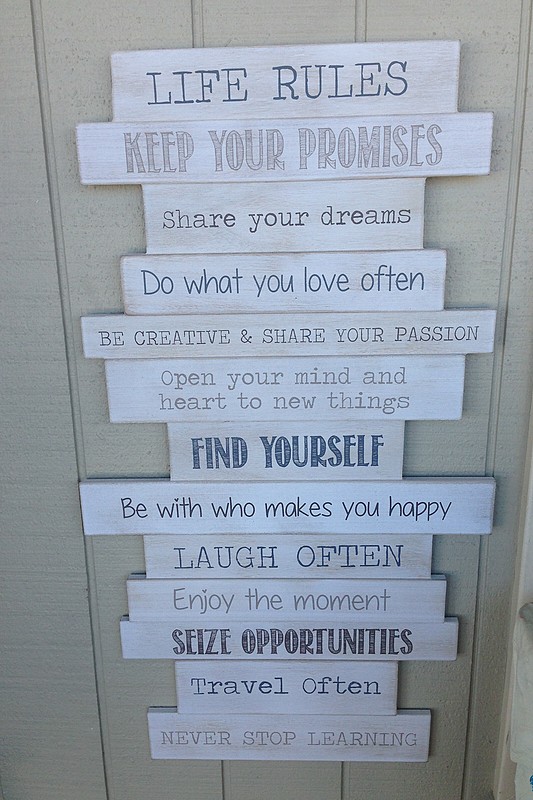 LIFE RULES
KEEP YOUR PROMISES
Share your dreams
Do what you love often
BE CREATIVE & SHARE YOUR PASSION
Open your mind and
heart to new things
FIND YOURSELF
Be with who makes you happy
LAUGH OFTEN
Enjoy the moment
SEIZE OPPORTUNITIES
Travel Often
NEVER STOP LEARNING